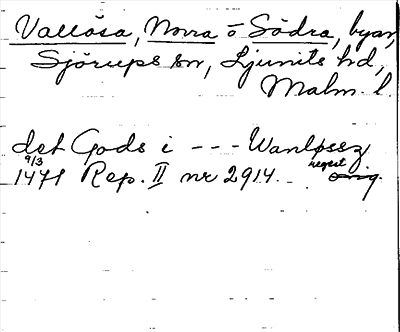 Vallösa, Norra o Södra, byar,
Sjörups sn, Ljunits hd,
Malm. l.
det Gods i --- Wanløssz
9/3 1471 Rep. II nr 2914. regest orig.